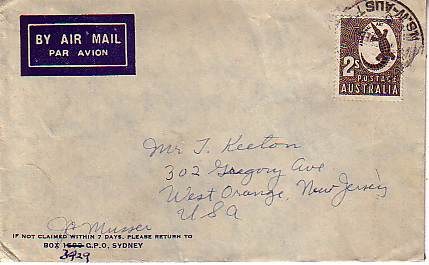 BY AIR MAIL
PAR AVION
N.S.W-AUST
2S
POSTAGE
AUSTRALIA
Mr T. Keeton
302 Gregory Ave
West Orange, New Jersey
USA
Musser
IF NOT CLAIMED WITHIN 7 DAYS, PLEASE RETURN TO
BOX G.P.O, SYDNEY
3929